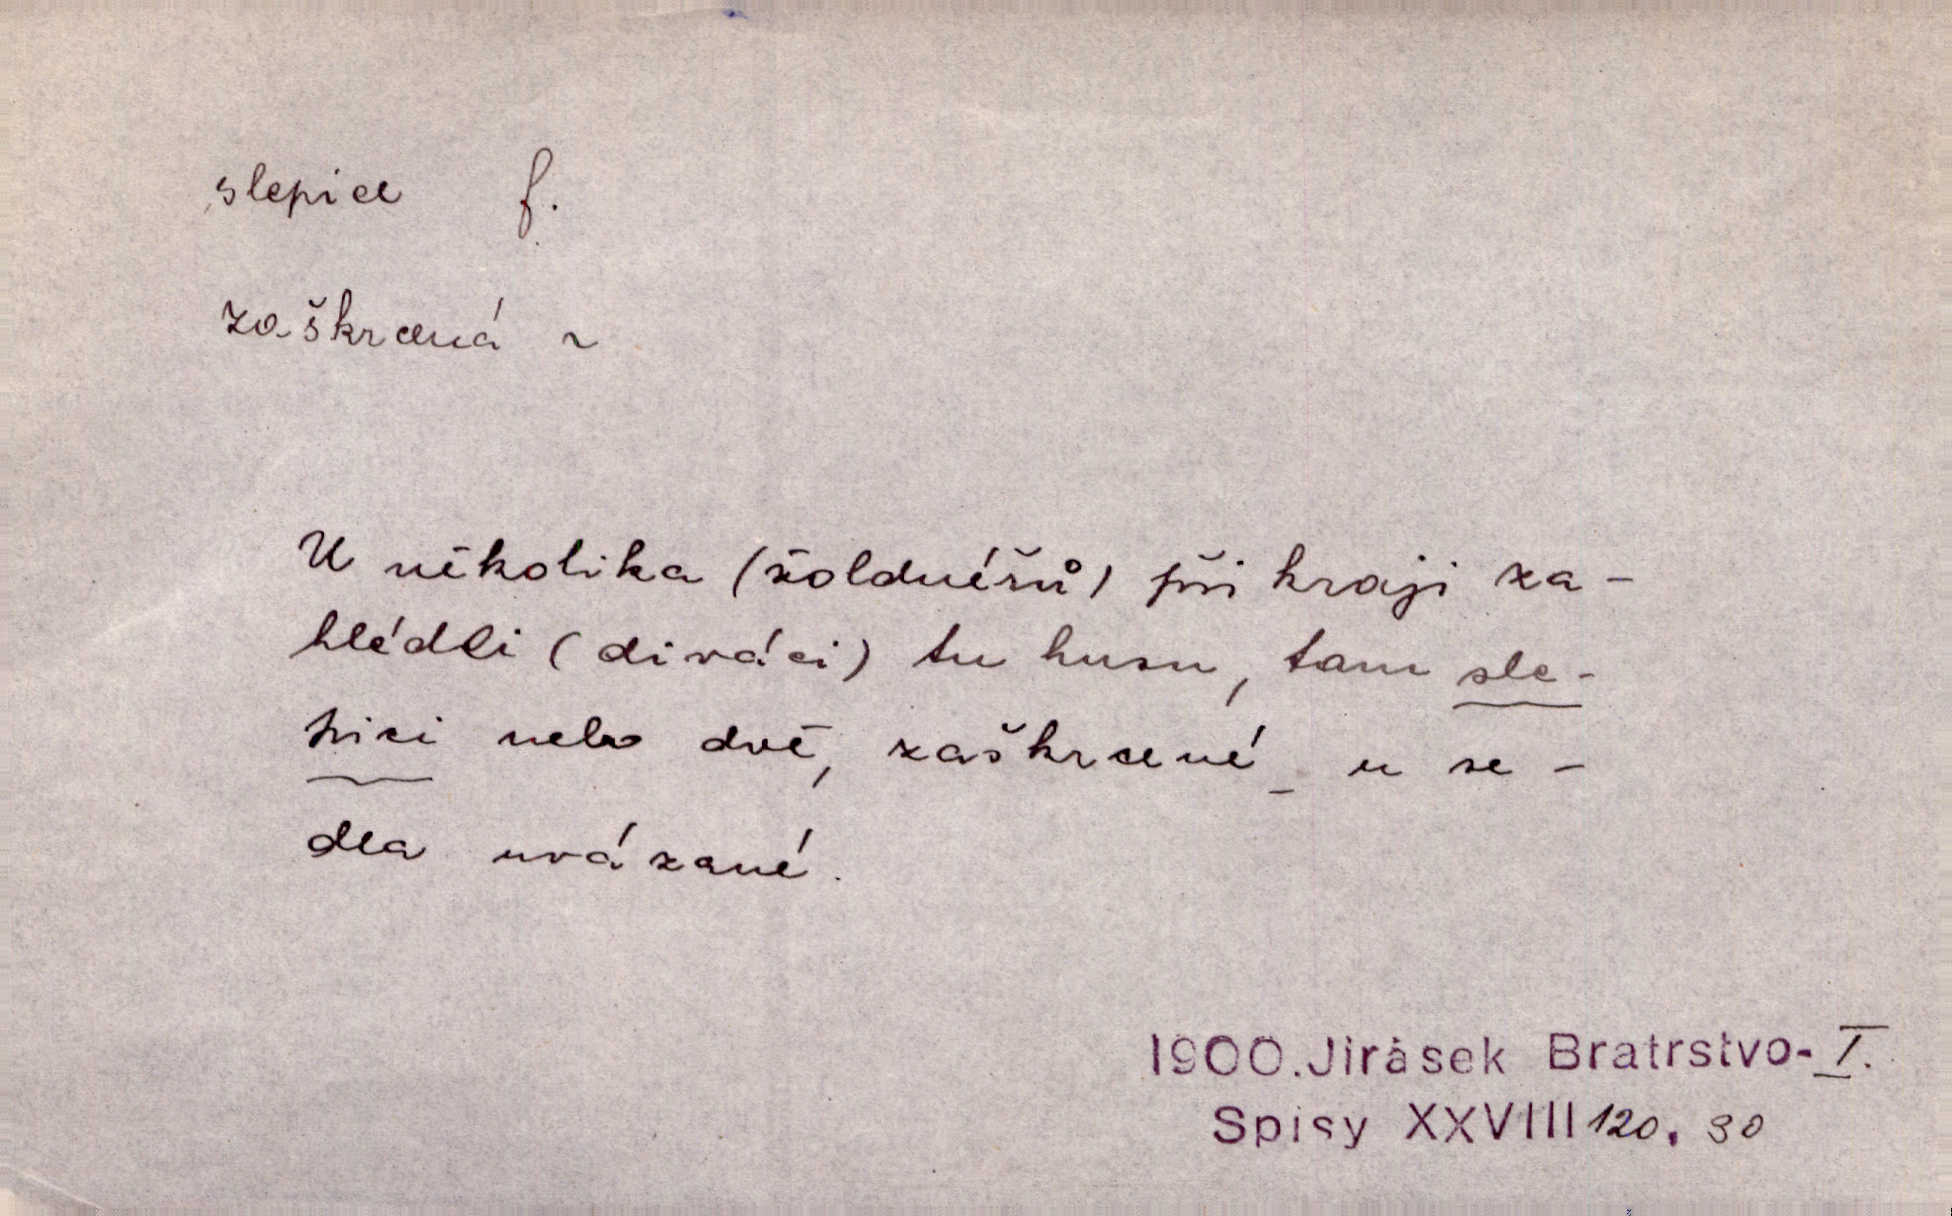 slepice f.
zaškrcená ~
U několika (žoldnéřů) při kraji za-
hlédli (diváci) tu husu, tam sle-
pici nebo dvě, zaškrcené_ u se-
dla uvázané.
1900. Jirásek Bratrstvo-I.
Spisy XXVIII 120, 30